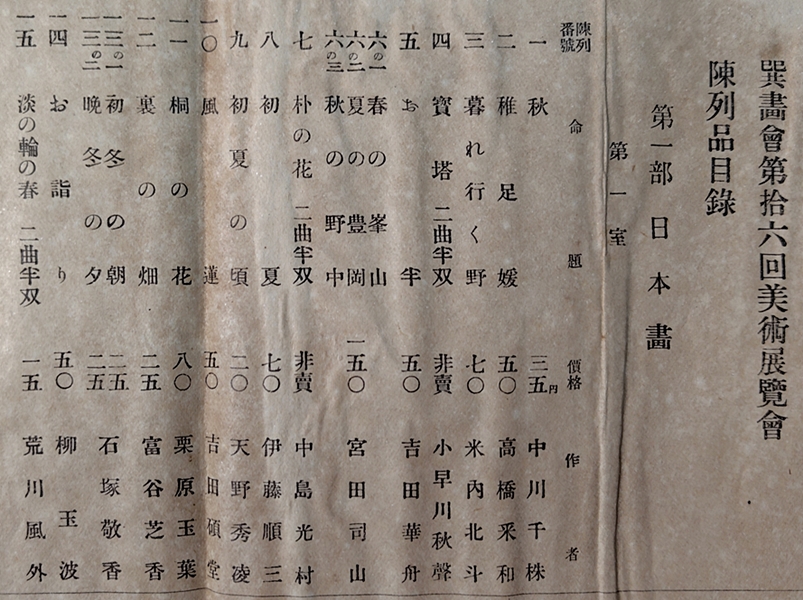 巽畫會第拾六回美術展覽會
陳列品目錄
第一部 日本畫
第一室
陳列番號 命題 價格 作者
一 秋 三五円 中川千株
二 稚足媛 五〇 高橋釆和
三 暮れ行く野 七〇 米內北斗
四 寶塔 二曲半双 非賣 小早川秋聲
五 お半 五〇 吉田華舟
六の一 春の峯山
六の二 夏の豊岡 一五〇 宮田司山
六の三 秋の野中
七 朴の花 二曲半双 非賣 中島光村
八 初夏 七〇 伊藤順三
九 初夏の頃 二〇 天野秀凌
一〇 風蓮 五〇 吉田傾堂
一一 桐の花 八〇 栗原玉葉
一二 裏の畑 二五 富谷芝香
一三の一 初冬の朝 二五 石塚敬香
一三の二 晩冬の夕 二五
一四 お詣り 五〇 柳玉波
一五 淡の輪の春 二曲半双 一五 荒川風外